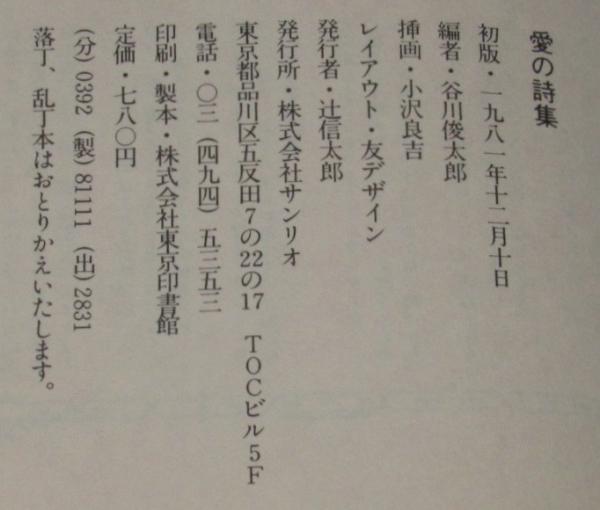 愛の詩集
初版・一九八一年十二月十日
編者・谷川俊太郎
挿画・小沢良吉
レイアウト・友デザイン
発行者・辻信太郎
発行所・株式会社サンリオ
東京都品川区五反田7の22の17　TOCビル5F
電話・〇三(四九四)五三五三
印刷・製本・株式会社東京印書館
定価・七八〇円
(分)0392　(製)81111　(出)2831
落丁、乱丁本はおとりかえいたします。